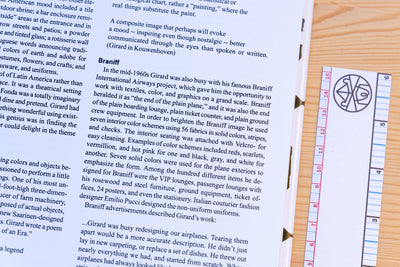 mood included a tile
tdoor shrine; a bar enclosure remini-
outside" areas at the entrance and in
row streets and patios; a powder
e and tinted glass; a rotisserie wall
uguese words announcing tradi-
colors of earth and adobe for
stumes, flowers, and crafts; and
ssware, and uniforms.
of Latin America rather than
ce. It was a theatrical setting
Fonda was a totally imaginary
d dine and pretend. Girard had
ething wonderful using exist-
his genius was in finding the
r could delight in the theme
ing colors and objects be-
ssioned to perform a little
foot-high three-dimen-
ucer of farm machinery,
posed of actual objects,
new Saarinen-designed
s. Girard wrote a poem
of an Era."
a legend
ological chart, rather a "painting," where the
real things substitute the paint.
A composite image that perhaps will evoke
a mood -- inspiring even though nostalgic -- better
communicated through the eyes than spoken or written.
(Girard in Kouwenhoven)
Braniff
In the mid-1960s Girard was also busy with his famous Braniff
International Airways project, which gave him the opportunity to
work with textiles, color, and graphics on a grand scale. Braniff
heralded it as "the end of the plain plane," and it was also the end
of the plain boarding lounge, plain ticket counter, and plain ground
crew equipment. In order to brighten the Braniff image he used
seven interior color schemes using 56 fabrics in solid colors, stripes,
and checks. The interior seating was attached with Velcro- for
easy cleaning. Examples of color schemes included reds, scarlets,
vermillion, and hot pink for one and black, gray, and white for
another. Seven solid colors were used for the plane exteriors to
emphasize the form. Among the hundred different items he de-
signed for Braniff were the VIP lounges, passenger lounges with
his rosewood and steel furniture, ground equipment, ticket of-
fices, 24 posters, and even the stationery. Italian couturier fashion
designer Emilio Pucci designed the non-uniform uniforms.
Braniff advertisements described Girard's work:
...Girard was busy redesigning our airplanes. Tearing them
apart would be a more accurate description. He didn't just
lay in new carpeting, or replace a set of dishes. He threw out
nearly everything we had, and started from scratch.
airplanes had always looked